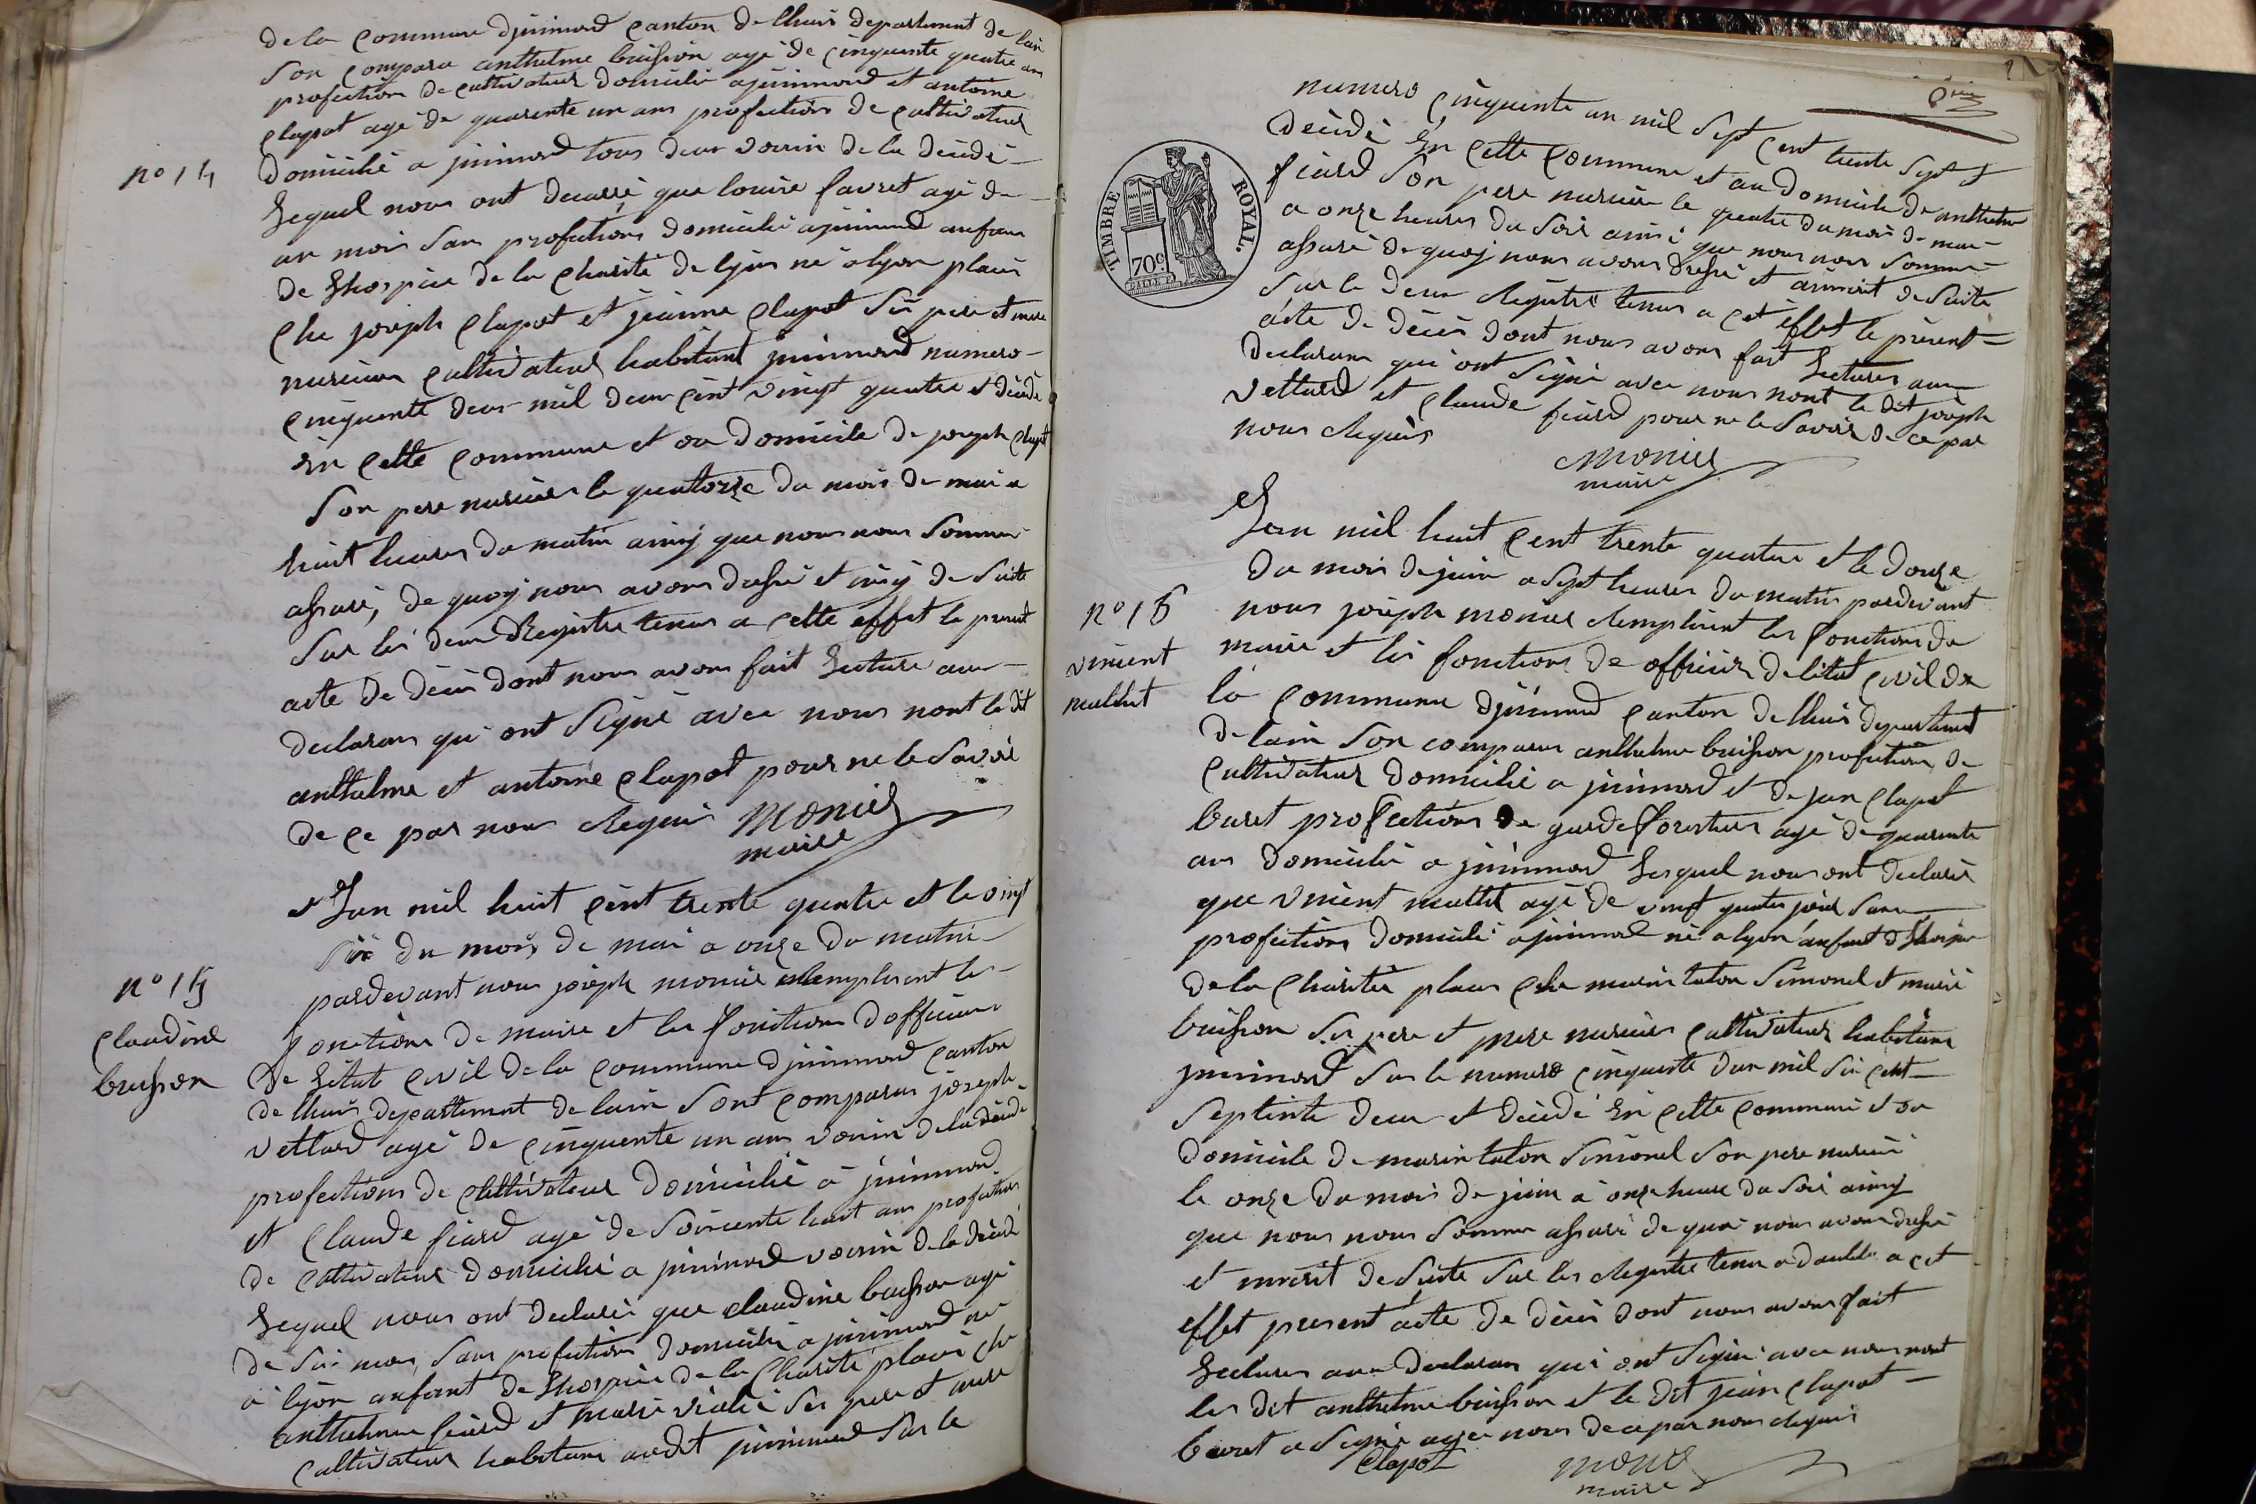 de la Commune djnimond Canton de lhuis departement de lain
Son Comparu anthelme buisson agé de Cinquente quatre ans
profection de Cultivateur domicilié ajnimond et antoine
Clapot agé de quarente un ans profection de Cultivateur
domicilié a jnimond tous deux voisin de la décédé
no 14
Lequel nous ont déclaré que louise favret agé de
un mois San profections domicilié ajnimond anfan
de Lhospice de la Charité de lyon né a lyon placé
Che joseph Clapot et jeanne Clapot Sis pere et mere
nuricier Cultivateur habitant jnimond numero
Cinquente deux mil deux Cent vingt quatre et décédé
En Cette Commune et au domicile de joseph Clapot
Son pere nuricier le quatorze du mois de mai a
huit heures du matin ainsy que nous nous Somme
assuré, de quoy nous avons dressé et de Suite
Sur les deux Registre tenus a Cette effet le present
acte de décès dont nous avons fait Lecture aux
declarans qui ont Signé avec nous nont le dit
anthelme et antoine Clapot pour ne le Savoir
de Ce par nous Requis Monier
maire
Lan mil huit Cent trente quatre et le vingt
Six du mois de mai a onze du matin
no 15
Claudine
buisson
pardevant nous joseph monier Remplisent les
fonctions de maire et les fonctions dofficier
de Létat Civil de la Commune djnimond Canton
de lhuis departement de lain Sont Comparus joseph
vettard agé de Cinquente un ans voisin de la décédé
profections de Cultivateur domicilié a jnimond
et Claude fiard agé de Soixente huit ans profections
de Cultivateur domicilié a jnimond voisin de la décédé
Lequel nous ont déclaré que Claudine buisson agé
de Six mois, Sans profections domicilié a jnimond né
a lyon anfant de Lhospice de la Charité placé Che
anthelme fiard et marie Ses pere et mere
Cultivateur habitans audit jnimond Sur le
numero Cinquente un mil Sept Cent trente Sept et
décédé En Cette Commune et au domicile de anthelme
fiard Son pere nuricier le quatre du mois de mai
a onze heures du Soir ainsi que nous nous Somme
assuré de quoy nous avons dressé et de Suite
Sur le deux Registre tenus a Cet effet le present
acte de décès dont nous avons fait Lectures aux
declarans qui ont Signé avec nous nont le dit joseph
vettard et Claude fiard pour ne le Savoir de ce par
nous Requis
Monier
maire
TIMBRE ROYAL.
70c
Lan mil huit Cent trente quatre et le douze
du mois de juin a Sept heures du matin pardevant
no 16
vincent
mallet
nous joseph monier Remplisent les fonctions de
maire et les fonctions de officier de létat Civil de
la Commune djnimond Canton de lhuis departement
de lain Son comparu anthelme buisson profections de
Cultivateur domicilié a jnimond et de jean Clapot
buret profections de garde forestier agé de quarente
ans domicilié a jnimond Lesquel nous ont déclaré
que vincent mallet agé de vint quatre jour San
profections domicilié ajnimond né a lyon anfant de Lhospice
de la Charité placé Che marin talon Simonel et marie
buisson Ses pere et mere nuricier Cultivateur habitans
jnimond Sur le numero Cinquente deux mil Six Cent
Septente deux et décédé En Cette Commune et au
domicile de marin talon Simonel Son pere nuricié
le onze du mois de juin a onze heure du Soir ainsy
que nous nous Somme assuré de quoi nous avons dressé
et inscrit de Suite Sur les Registre tenu a double a Cet
effet present acte de décès dont nous avons fait
Lectures aux declarans qui ont Signé avec nous nont
les dit anthelme buisson et le dit jean Clapot
buret a Signé avec nous de ce par nous Requis
Clapot
Monier
maire